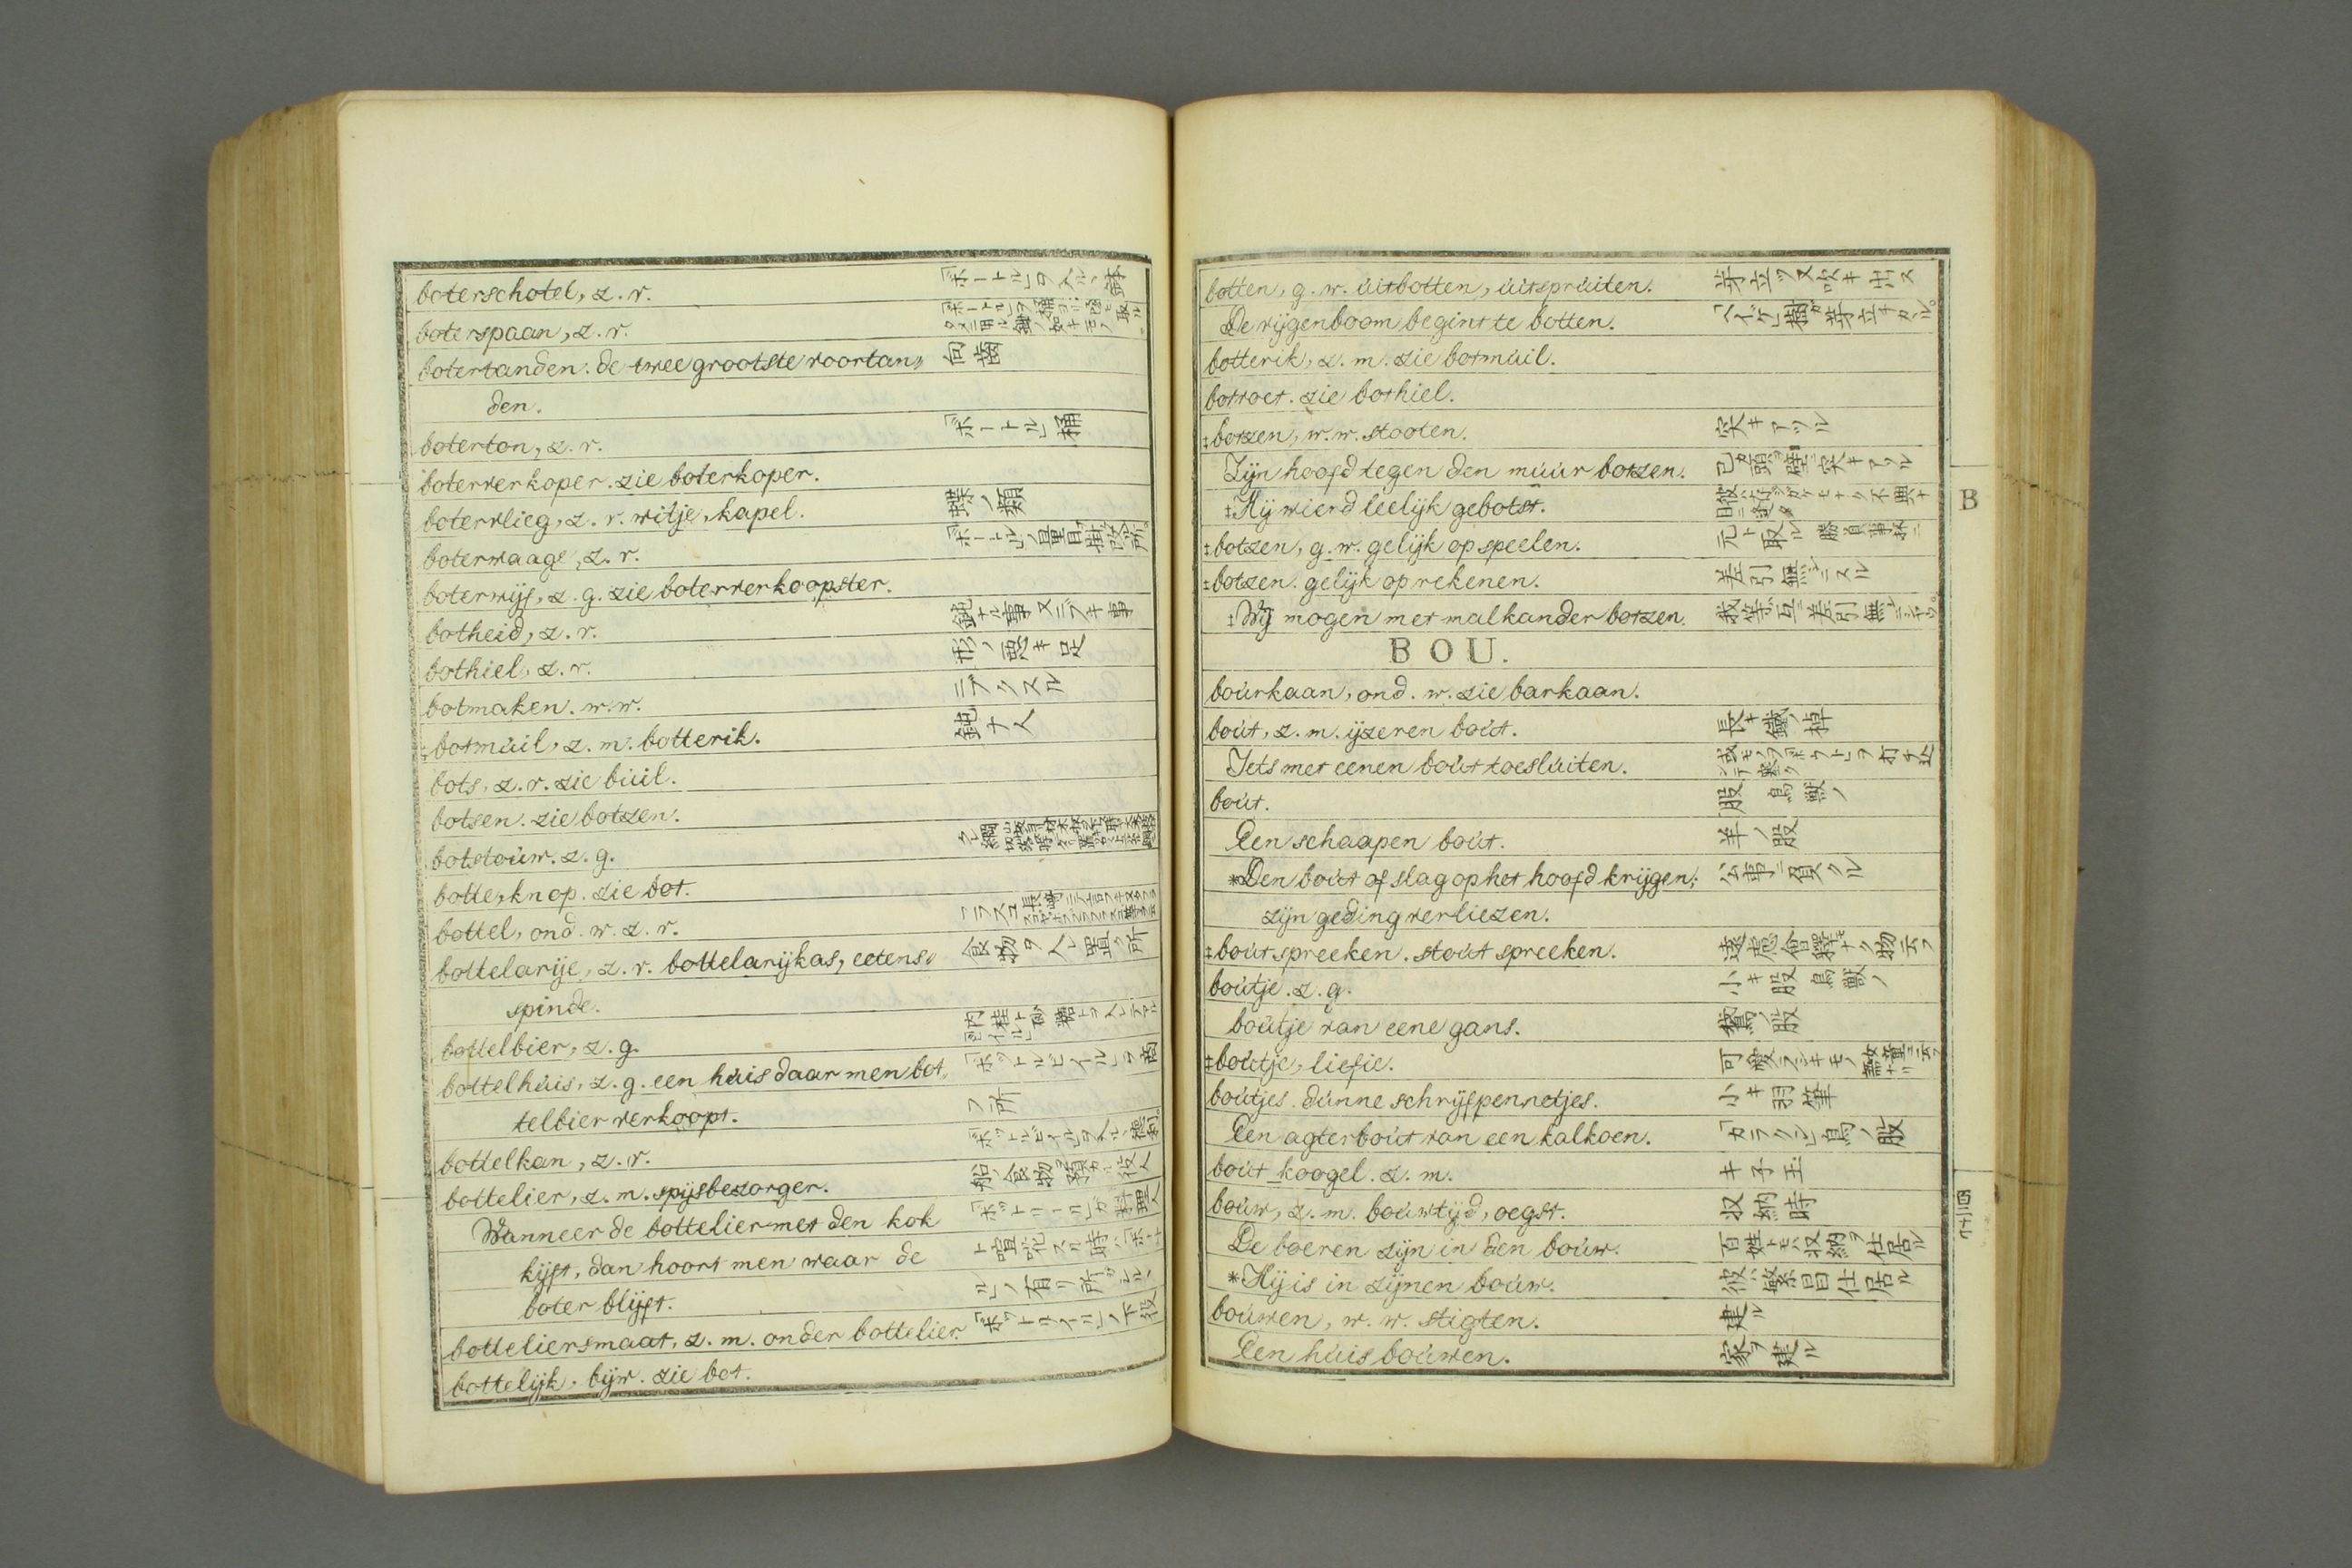 boterschotel, z. v. 「ボートル」ヲ入ル、鉢
boterspaan, z. v.
botertanden. de twee grootste voortan„ 向齒
den.
boterton, z. v. 「ボートル」桶
boterverkoper. zie boterkoper.
botervlieg, z. v. witje, kapel. 蝶ノ類
boterwaage, z. v. 「ボートル」ノ量目掛改所。
boterwijf, z. g. zie boterverkoopster.
botheid, z. v. 鈍ナル事又ニブキ事
bothiel, z. v. 形ノ惡キ足
botmaken. w. w. ニブクスル
‡botmúil, z. m. botterik. 鈍ナ人
bots, z. v. zie búil.
botsen. zie botzen.
botstoúw. z. g.
botte, knop. zie bot.
bottel, ond. w. z. v.
bottelarije, z. v. bottelarijkas, eetens„ 食物ヲ入レ置ク所
spinde.
bottelbier, z. g. 肉桂ト砂糖トヲ入レテアル
bottelhúis, z. g. een húis daar men bot„ 「ボットルビイル」ヲ商
telbier verkoopt. フ所
bottelkan, z. v. 「ボットルビイル」ヲ入ル、徳利。
bottelier, z. m. spijsbezorger. 船ノ食物ヲ預カル役人
Wanneer de bottelier met den kok 「ボットリール」ガ料理人
kijft, dan hoort men waar de ト喧嘩スル時ハ「ボート
boter blijft. ル」ノ有リ所
botteliersmaat, z. m. onder bottelier. 「ボットリイル」ノ下役
bottelijk. bijw. zie bot.
botten, g. w. úitbotten, úitsprúiten. 芽立ツ又吹キ出ス
De vijgenboom begint te botten.
botterik, z. m. zie botmúil.
botvoet. zie bothiel.
‡botzen, w. w. stooten. 突キアツル
Zijn hoofd tegen den múúr botzen. 己ガ頭ヲ壁ニ突キアツル
‡Hij wierd leelijk gebotst.
‡botzen, g. w. gelijk op speelen. 元ト取ル 勝負事抔ニ
‡botzen. gelijk op rekenen. 差引無シニスル
‡Wij mogen met malkander botzen. 我等互ニ差引無シニシヤウ。
BOU.
boúrkaan, ond. w. zie barkaan.
boút, z. m. ijzeren boút. 長キ鐵ノ棹
Iets met eenen boút toeslúiten.
boút. 股 鳥獸ノ
Een schaapen boút. 羊ノ股
*Den boút of slag op het hoofd krijgen; 公事ニ負クル
zijn geding verliezen.
‡boút spreeken. stoút spreeken. 遠慮會釋モナク物云フ
boútje. z. g. 小キ股 鳥獸ノ
boútje van eene gans. 鵞ノ股
‡boútje, liefje.
boútjes. dúnne schrijfpennetjes. 小キ羽筆
Een agterboút van een kalkoen. 「カラクン」鳥ノ股
boút_koogel. z. m. キ子玉
boúw, z. m. boúwtijd, oegst. 収納時
De boeren zijn in den boúw. 百姓トモハ収納ヲ仕居ル
*Hij is in zijnen boúw. 彼ハ繁昌仕居ル
boúwen, w. w. stigten. 建ル
Een húis boúwen. 家ヲ建ル
B